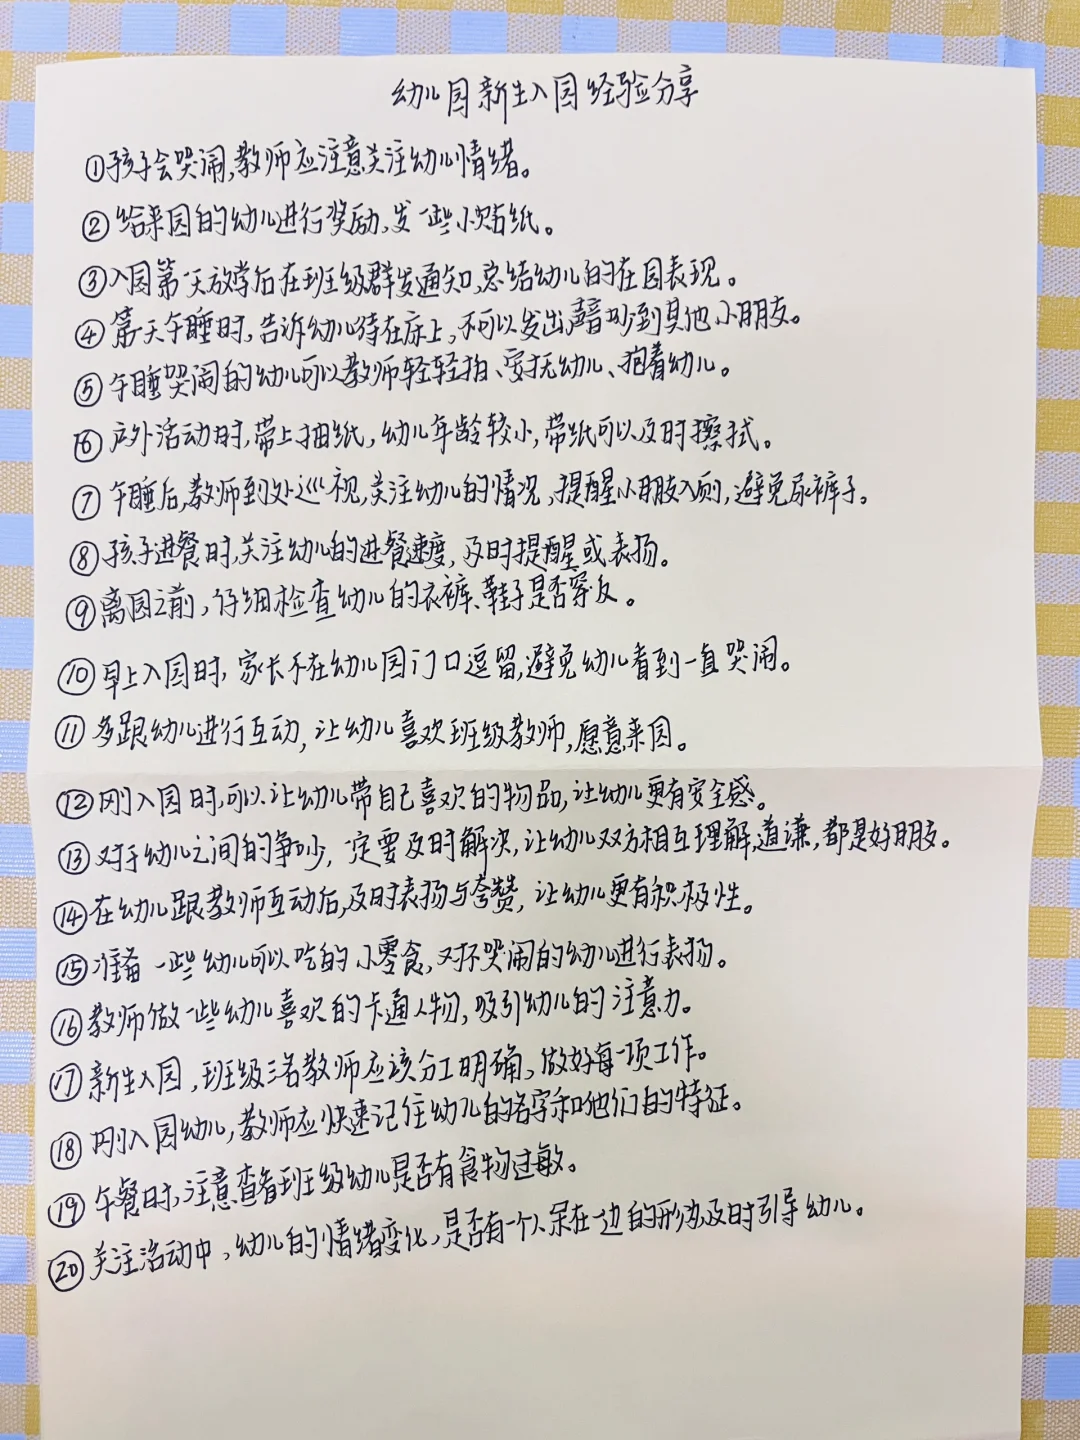 幼儿园新生入园经验分享
①孩子会哭闹,教师应注意关注幼儿情绪。
②给来园的幼儿进行奖励,发一些小贴纸。
③入园第一天放学后在班级群发通知,总结幼儿的在园表现。
④第一天午睡时,告诉幼儿待在床上,不可以发出声音吵到其他小朋友。
⑤午睡哭闹的幼儿可以教师轻轻拍、安抚幼儿、抱着幼儿。
⑥户外活动时,带上抽纸,幼儿年龄较小,带纸可以及时擦拭。
⑦午睡后,教师到处巡视,关注幼儿的情况,提醒小朋友入厕,避免尿裤子。
⑧孩子进餐时,关注幼儿的进餐速度,及时提醒或表扬。
⑨离园之前,仔细检查幼儿的衣裤、鞋子是否穿反。
⑩早上入园时,家长不在幼儿园门口逗留,避免幼儿看到一直哭闹。
⑪多跟幼儿进行互动,让幼儿喜欢班级教师,愿意来园。
⑫刚入园时,可以让幼儿带自己喜欢的物品,让幼儿更有安全感。
⑬对于幼儿之间的争吵,一定要及时解决,让幼儿双方相互理解,道谦,都是好朋友。
⑭在幼儿跟教师互动后,及时表扬与夸赞,让幼儿更有积极性。
⑮准备一些幼儿可以吃的小零食,对不哭闹的幼儿进行表扬。
⑯教师做一些幼儿喜欢的卡通人物,吸引幼儿的注意力。
⑰新生入园,班级三名教师应该分工明确,做好每一项工作。
⑱刚入园幼儿,教师应快速记住幼儿的名字和他们的特征。
⑲午餐时,注意查看班级幼儿是否有食物过敏。
⑳关注活动中,幼儿的情绪变化,是否有一个人呆在一边的形为,及时引导幼儿。